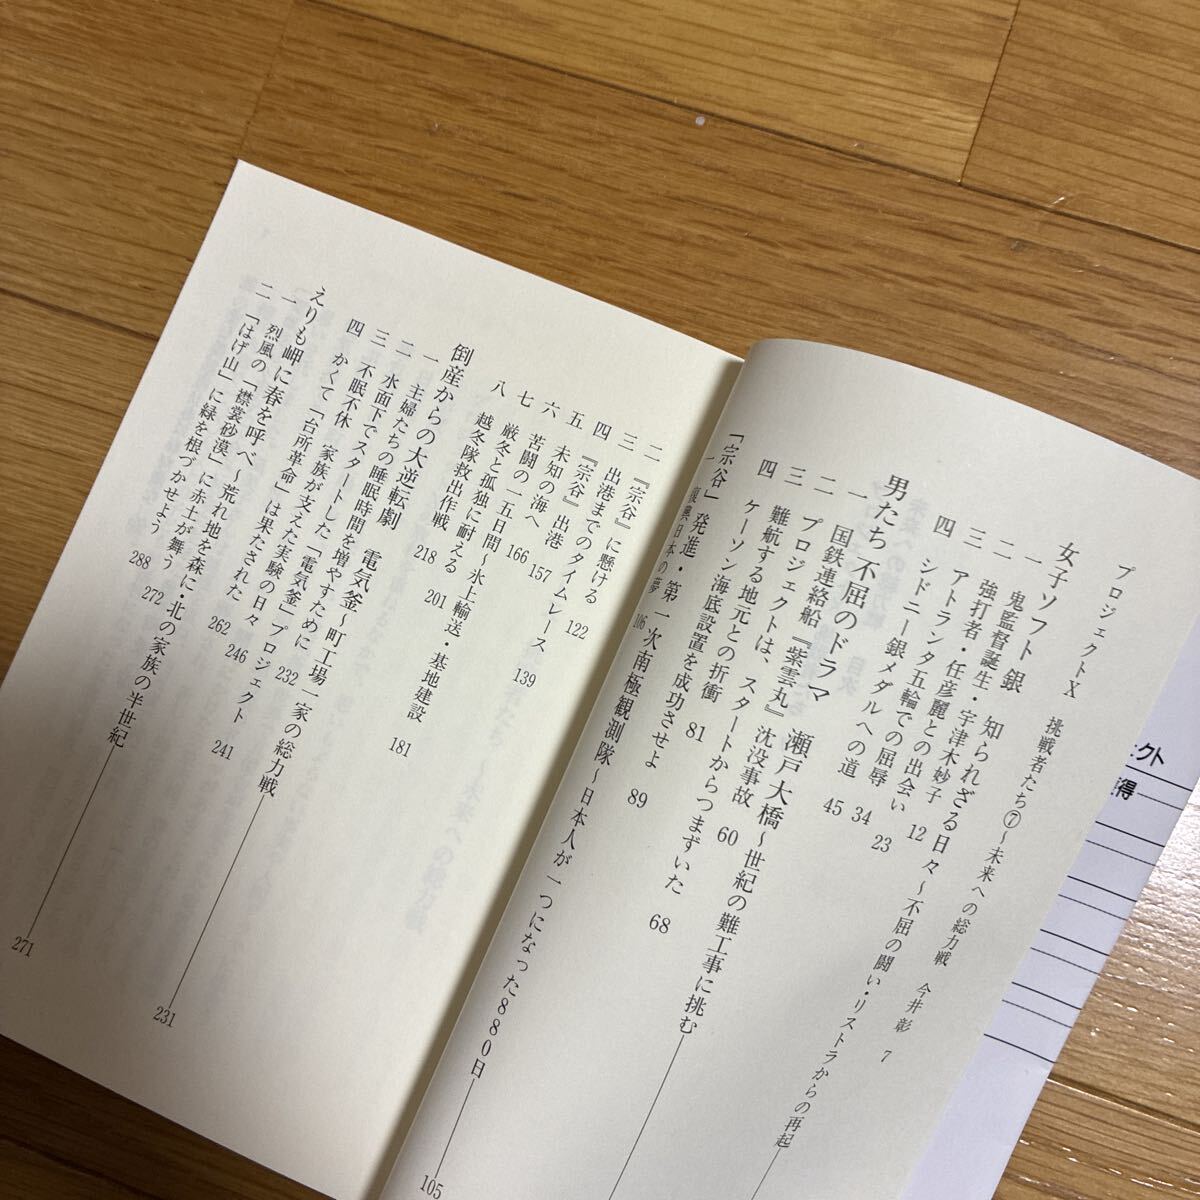 プロジェクトX 挑戦者たち⑦〜未来への総力戦 今井彰 7
女子ソフト銀 知られざる日々〜不屈の闘い・リストラからの再起
一 鬼監督誕生・宇津木妙子 12
二 強打者・任彦麗との出会い 23
三 アトランタ五輪での屈辱 34
四 シドニー銀メダルへの道 45
男たち不屈のドラマ 瀬戸大橋〜世紀の難工事に挑む
一 国鉄連絡船『紫雲丸』沈没事故 60
二 プロジェクトは、スタートからつまずいた 68
三 難航する地元との折衝 81
四 ケーソン海底設置を成功させよ 89
「宗谷」発進・第一次南極観測隊〜日本人が一つになった880日 105
一 復興日本の夢 106
二 『宗谷』に懸ける 122
三 出港までのタイムレース 139
四 『宗谷』出港 157
五 未知の海へ 166
六 苦闘の一五日間〜氷上輸送・基地建設 181
七 厳冬と孤独に耐える 201
八 越冬隊救出作戦 218
倒産からの大逆転劇 電気釜〜町工場一家の総力戦 231
一 主婦たちの睡眠時間を増やすために 232
二 水面下でスタートした「電気釜」プロジェクト 241
三 不眠不休 家族が支えた実験の日々 246
四 かくて「台所革命」は果たされた 262
えりも岬に春を呼べ〜荒れ地を森に・北の家族の半世紀 271
一 烈風の「襟裳砂漠」に赤土が舞う 272
二 「はげ山」に緑を根づかせよう 288
クト
得